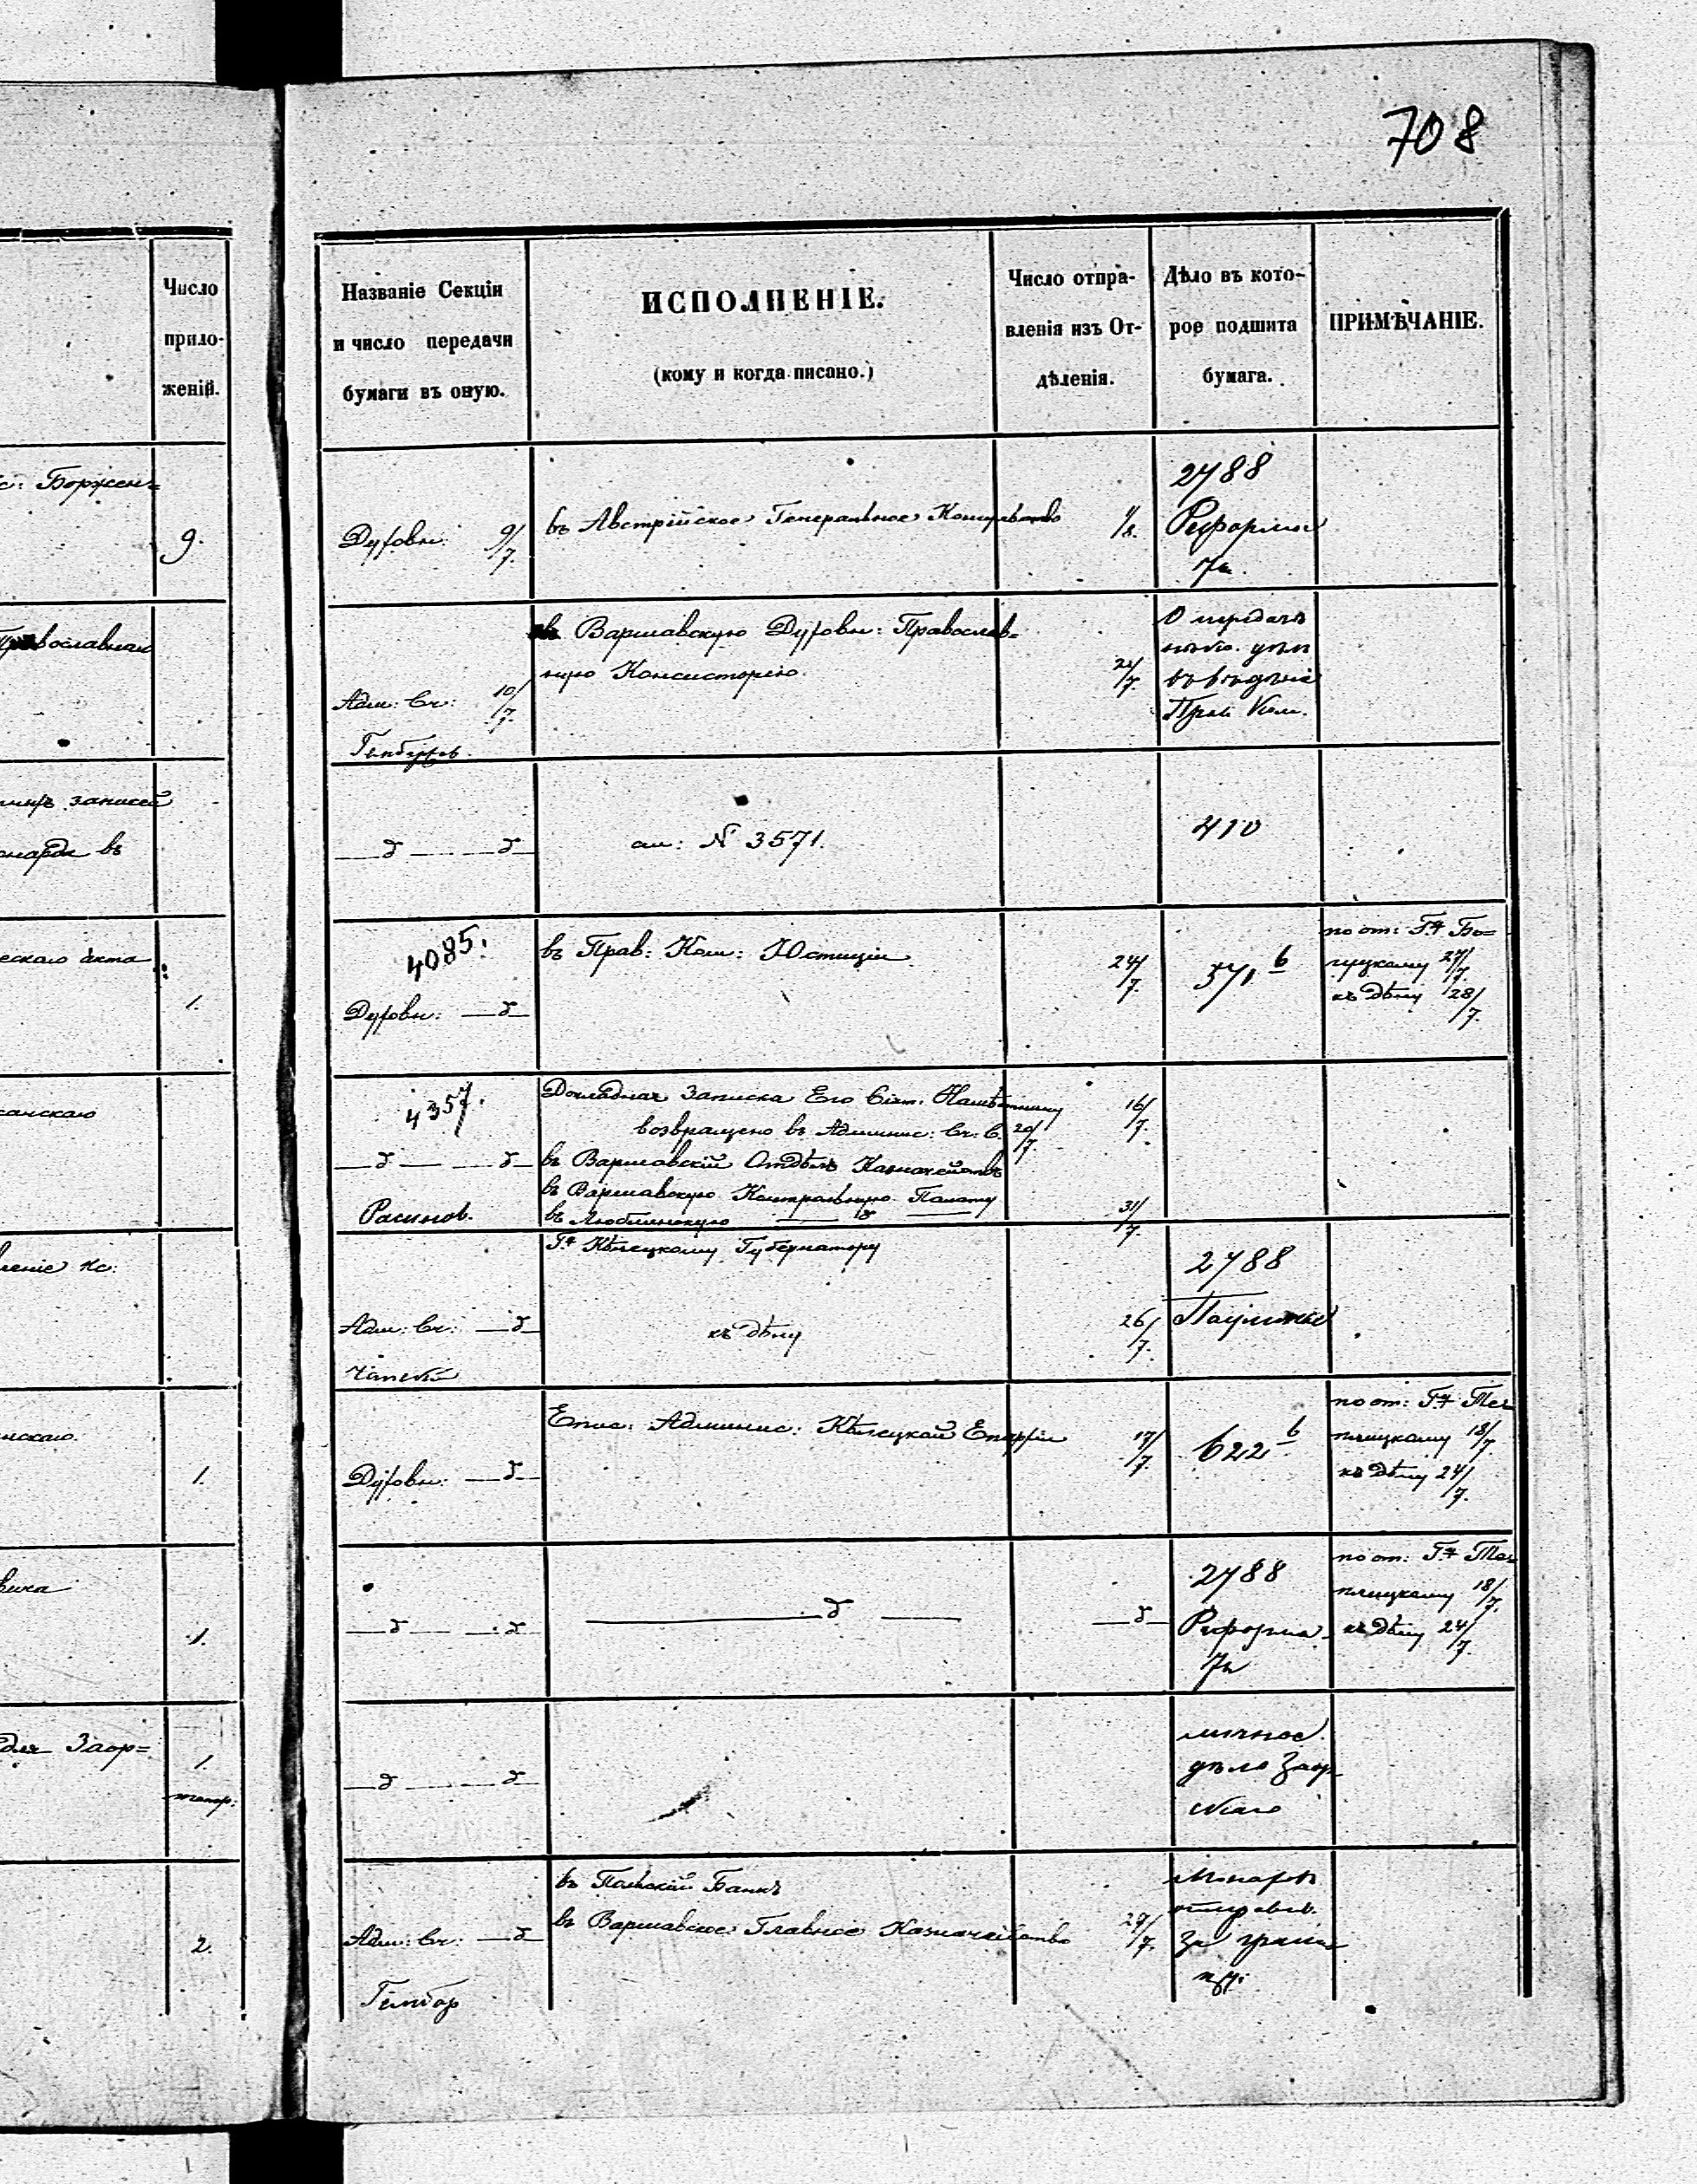 708
Число
прило-
женій.
с: Боржен=
9.
Православная
записей
въ
ескаго акта
1.
санскаго
леніе кс:
1.
нскаго.
вича
1.
для Заор=
1.
2.
Названіе Секціи
и число передачи
бумаги въ оную.
ИСПОЛНЕНІЕ.
(кому и когда писано.)
Число отпра-
вленія изъ От-
дѣленія.
Дѣло въ кото-
рое подшита
бумага.
ПРИМѢЧАНІЕ.
Духовн: 9/7.
въ Австрійское Генеральное Консульство
1/8.
2788
Реформаты
Адм: Сч: 10/7.
въ Варшавскую Духовн: Православ=
ную Консисторію.
24/7.
О передачѣ
въ вѣдѣніе
Прав. Ком.
—δ— —δ—
ап: № 3571.
410
4085.
Духовн: —δ—
въ Прав: Ком: Юстиціи.
24/7.
571 b
по от: Гну Бо=
гуцкому 27/7.
къ дѣлу 28/7.
4357.
—δ— —δ—
Расинов.
Докладная Записка Его Сіят. Намѣстнику 16/7.
возвращено въ Админис: Сч: С. 20/7
въ Варшавскій Отдѣлъ Казначейства
въ Варшавскую Контрольную Палату
въ Люблинскую —δ— 31/7.
Гну Кѣлецкому Губернатору
Адм: Сч: —δ—
къ дѣлу
26/7.
2788
Духовн: —δ—
Епис: Админис: Кѣлецкой Епархіи
17/7.
622 b
по от: Гну Теп
лицкому 18/7
къ дѣлу 24/7.
—δ— —δ—
—δ—
—δ—
2788
Реформа.
по от: Гну Теп
лицкому 18/7.
къ дѣлу 24/7.
—δ— —δ—
личное
дѣло Заор
скаго
Адм: Сч: —δ—
въ Польскій Банкъ
въ Варшавское Главное Казначейство
27/7.
Монахов
отправл.
За грани=
цу.